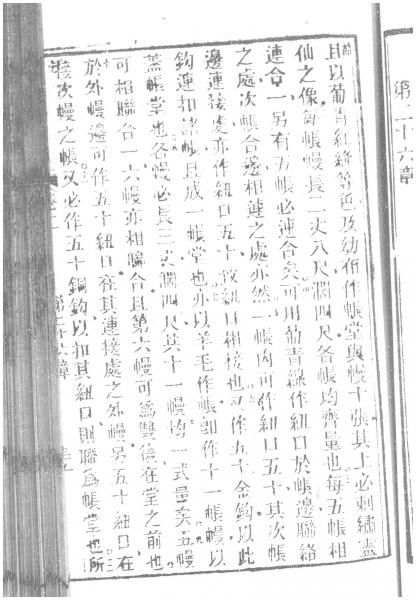 第二十六章
且以葡青紅絳等色及幼布作帳堂與幔十張其上必刺繡靈
仙之像每帳幔長二丈八尺濶四尺各帳均齊量也每五帳相
連合一另有五帳必連合矣可用葡青線作紐口於帳邊聯絡
之處次帳合邊相連之處亦然一帳内可作紐口五十其次帳
邊連接處亦作紐口五十致紐口相接也又作五十金鈎以此
鈎連扣諸帳且成一帳堂也亦以羊毛作帳即作十一帳幔以
蓋帳堂也各幔必長三丈濶四尺其十一幔均一式量矣五幔
可相聯合一六幔亦相聯合且第六幔可為雙德在堂之前也
於外幔邊可作五十紐口在其連接處之外幔另五十紐口在
接次幔之帳又必作五十銅鈎以扣其紐口則聯為帳堂也所
第二十六章